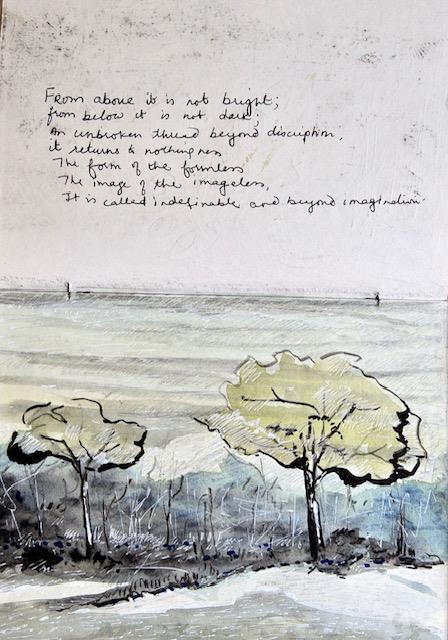 From above it is not bright;
from below it is not dark;
An unbroken thread beyond discription,
it returns to nothingness
The form of the formless
The image of the imageless,
It is called indefinable and beyond imagination.